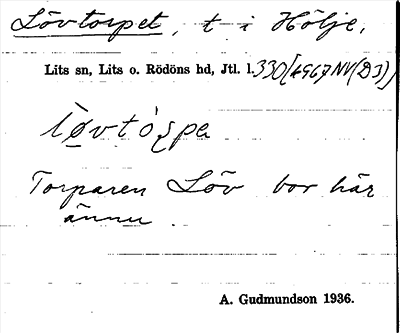 Lövtorpet, t i Hölje,
Lits sn, Lits o. Rödöns hd, Jtl. l. 330 [4967 NV (D3)]
Torparen Löv bor här
ännu.
A. Gudmundson 1936.